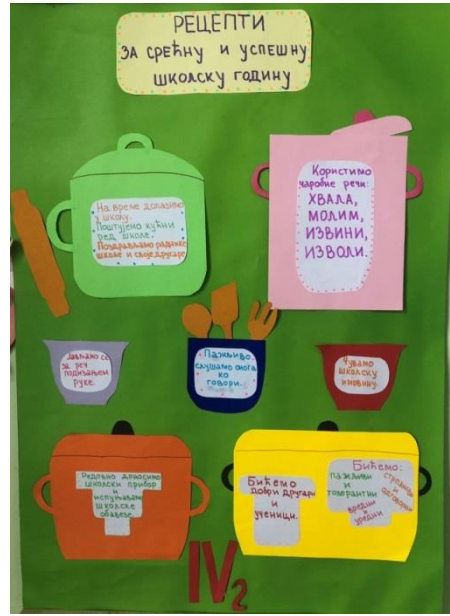 РЕЦЕПТИ
ЗА СРЕЋНУ И УСПЕШНУ
ШКОЛСКУ ГОДИНУ
На време долазимо
у школу.
Поштујемо кућни
ред школе.
Поздрављамо раднике
школе и своје другаре.
Користимо
чаробне речи:
ХВАЛА,
МОЛИМ,
ИЗВИНИ,
ИЗВОЛИ.
Јављамо се
за реч
подизањем
руке.
Пажљиво
слушамо онога
ко
говори.
Чувамо
школску
имовину.
Редовно доносимо
школски прибор
и
испуњавамо
школске
обавезе.
Бићемо
добри другари
и
ученици.
Бићемо:
пажљиви
и
толерантни
стрпљиви
и
одговорни
вредни
и
уредни
IV2